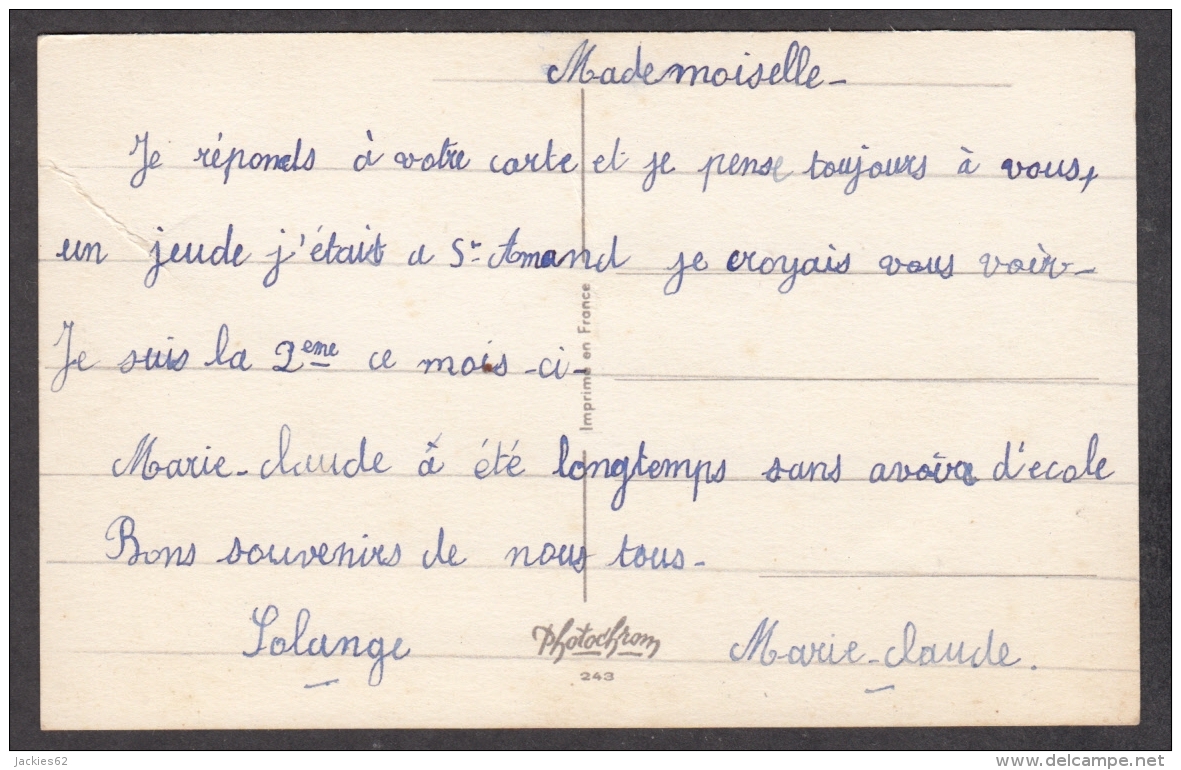 Mademoiselle -
Je réponds à votre carte et je pense toujours à vous,
un jeude j'étais a St Amand je croyais vous voir -
Je suis la 2eme ce mois-ci -
Marie-claude à été longtemps sans avoir d'ecole
Bons souvenirs de nous tous -
Solange
Marie-claude.
Imprimé en France
Photochrom
243
jackies62
delcampe.net